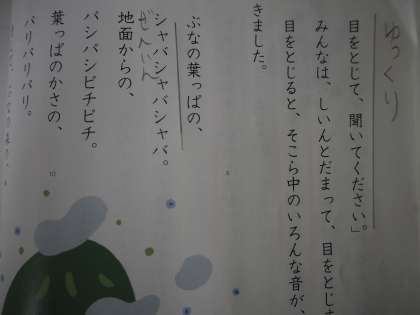 ゆっくり
目をとじて、聞いてください。」
みんなは、しいんとだまって、目をとじま
目をとじると、そこら中のいろんな音が、
きました。
ぶなの葉っぱの、
シャバシャバシャバ。
ぜんいん
地面からの、
バシバシピチピチ。
葉っぱのかさの、
バリバリバリ。
10